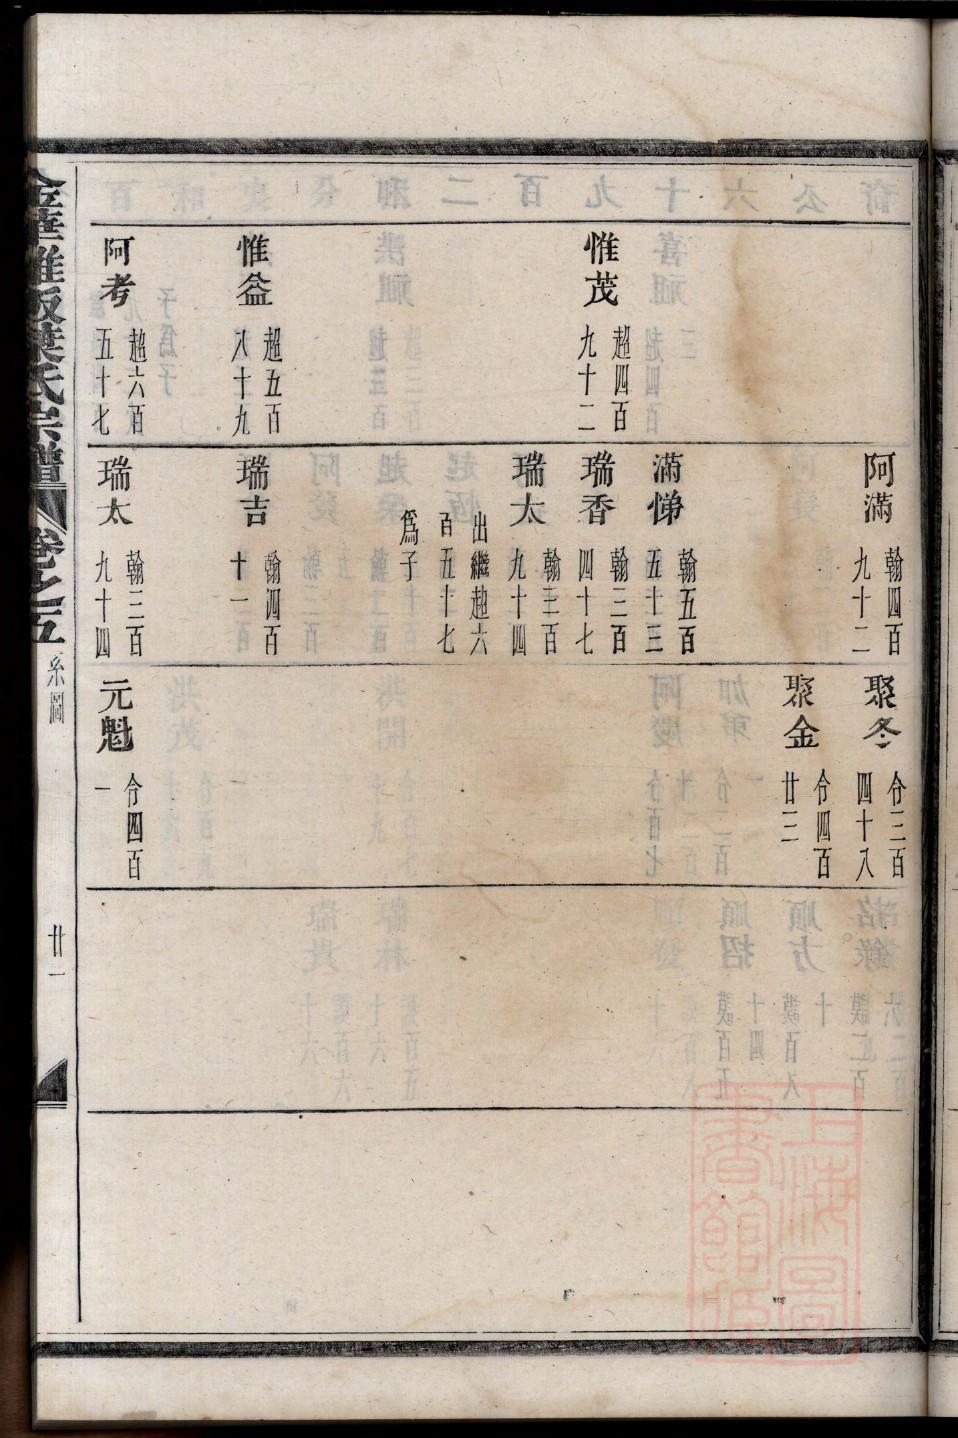 惟茂 超四百九十二
惟益 超五百八十九
阿考 超六百五十七
阿滿 翰四百九十二
滿悌 翰五百五十三
瑞香 翰三百四十七
瑞太 翰三百九十四
出繼超六百五十七爲子
瑞吉 翰四百十一
瑞太 翰三百九十四
聚冬 合三百四十八
聚金 合四百廿三
元魁 合四百一
金華雅畈葉氏宗譜 卷之五 系圖 廿一
上海圖書館藏